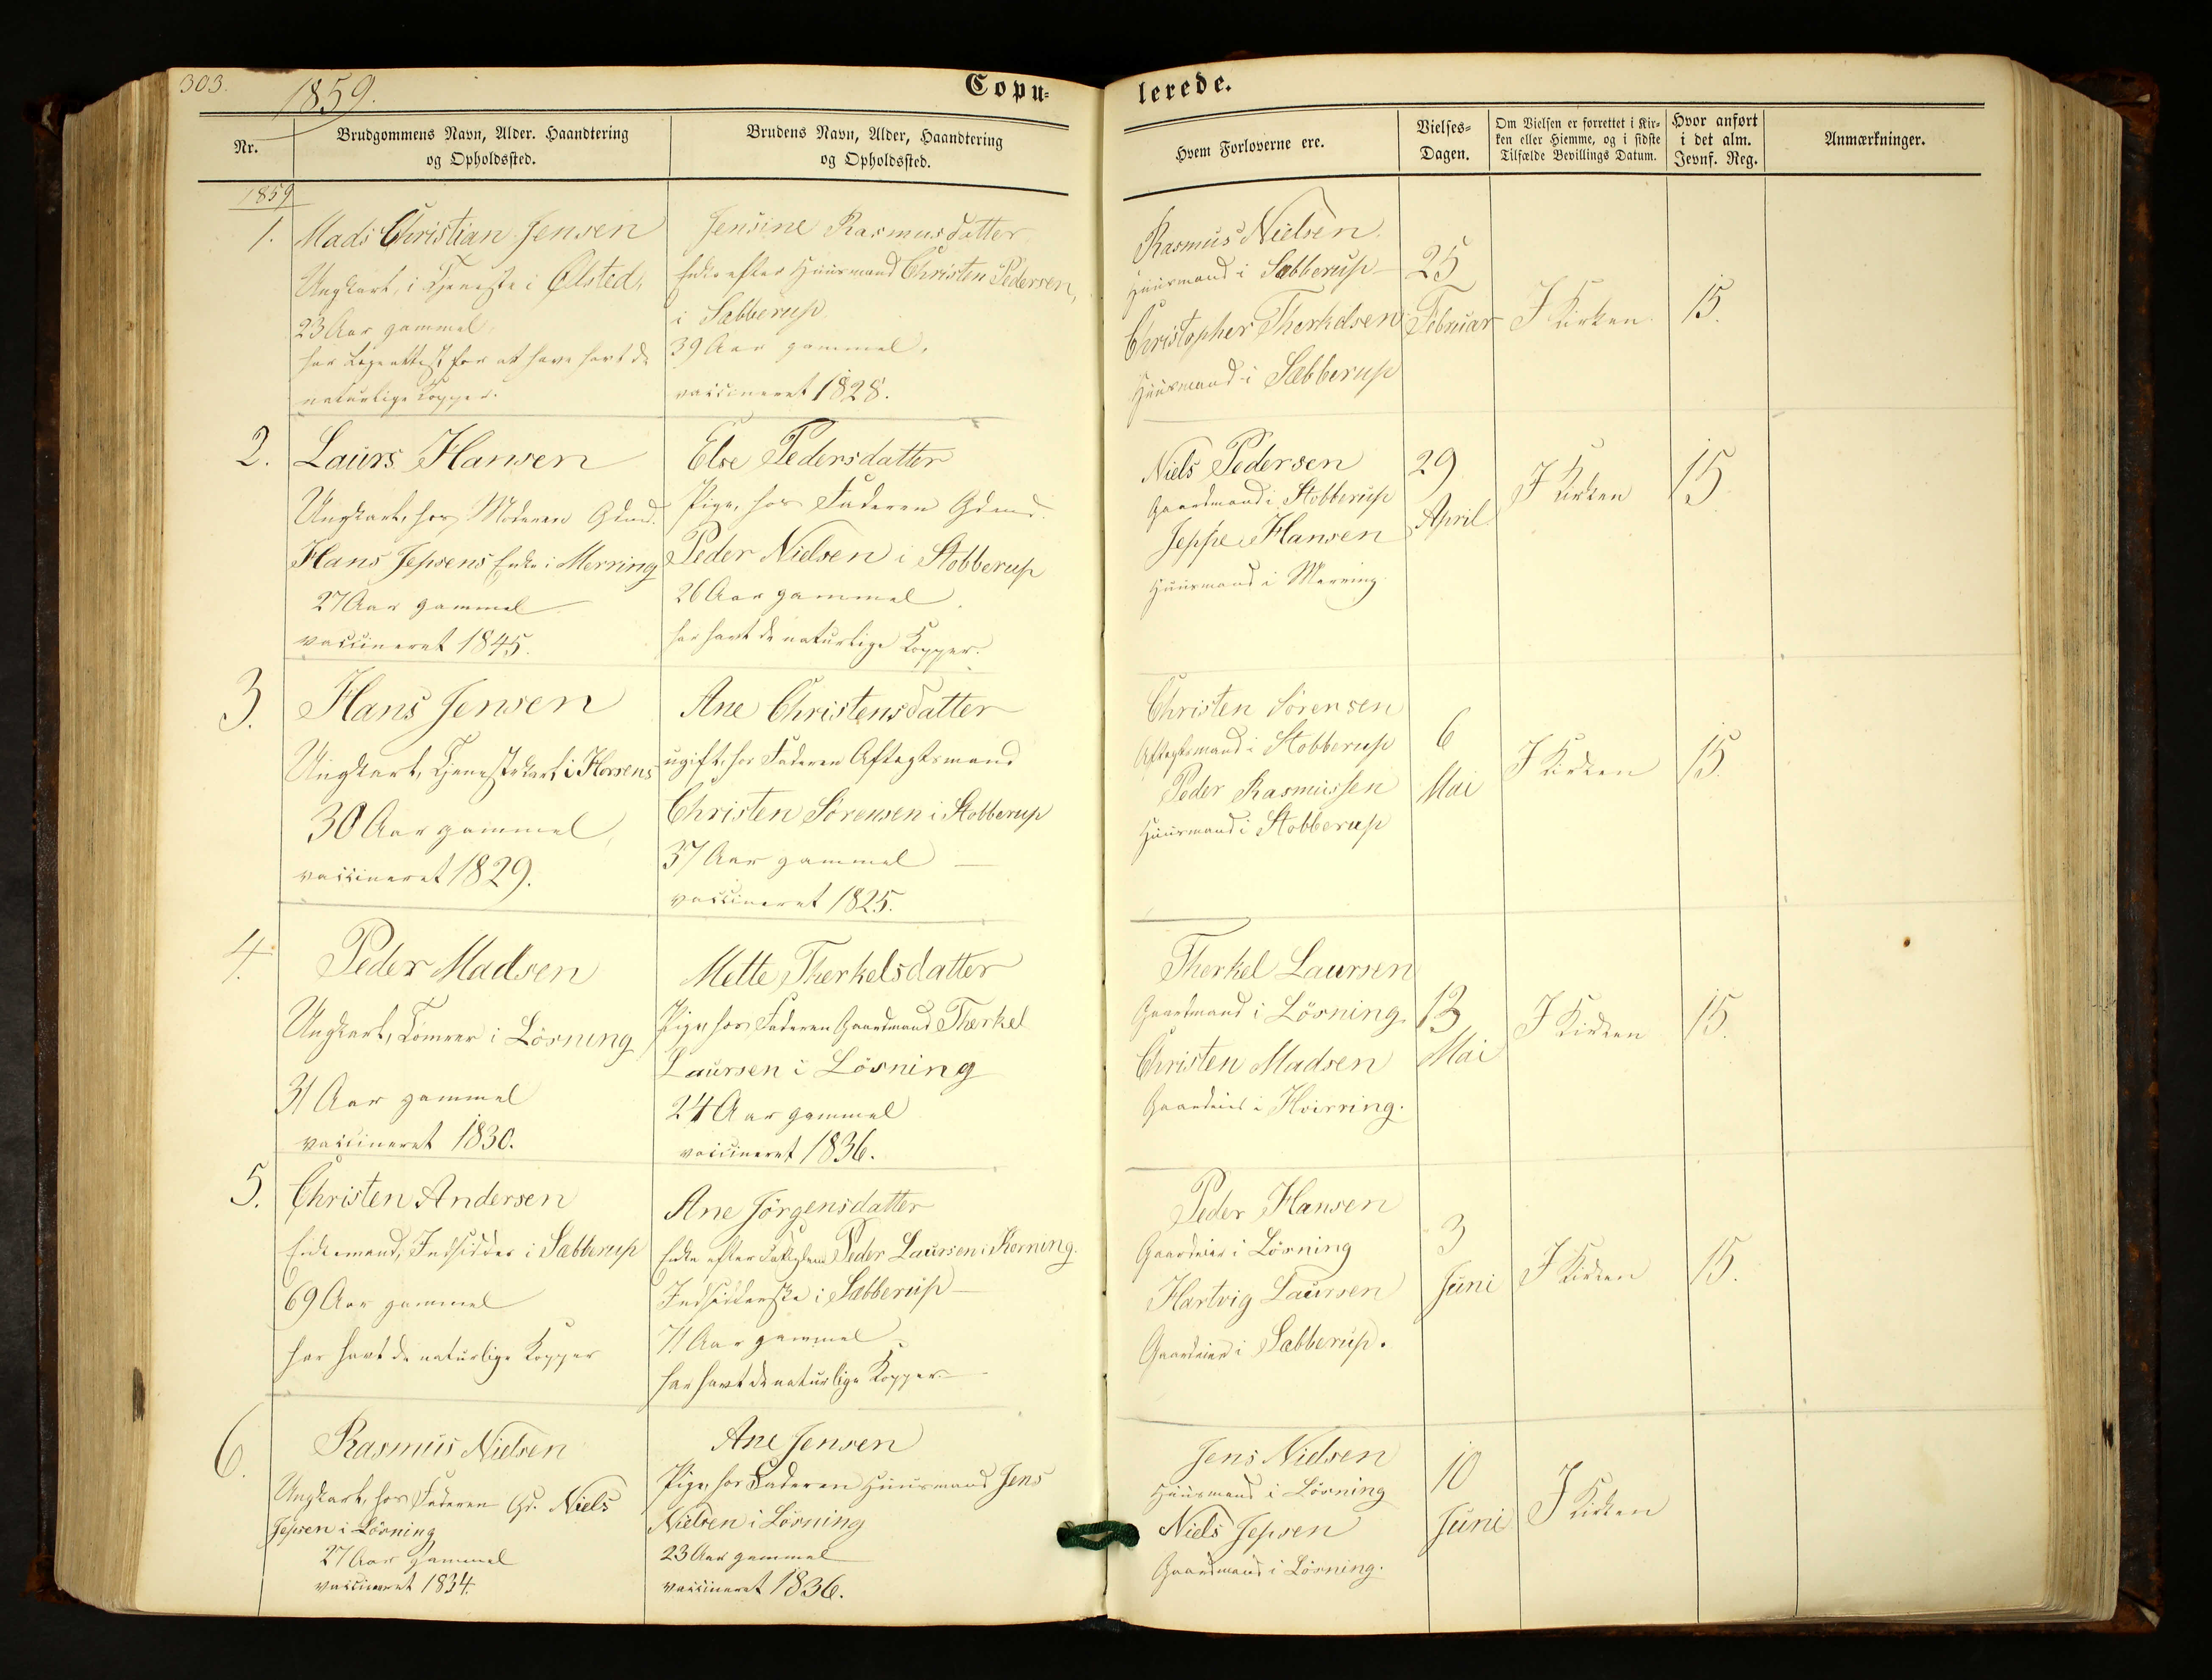 303.
1859.
Copu-
lerede.
Nr.
Brudgommens Navn, Alder. Haandtering
og Opholdssted.
Brudens Navn, Alder, Haandtering
og Opholdssted.
Hvem Forloverne ere.
Vielses-
Dagen.
Om Vielsen er forrettet i Kir-
ken eller Hiemme, og i sidste
Tilfælde Bevillings Datum.
Hvor anført
i det alm.
Jevnf. Reg.
Anmærkninger.
1859
1.
Mads Christian Jensen
Ungkarl, i Tjeneste i Ølsted,
23 Aar gammel,
har Lægeattest for at have havt de
naturlige Kopper.
Jensine Rasmusdatter
Enke efter Huusmand Christen Pedersen,
i Sæbberup
39 Aar gammel,
vaccineret 1828.
Rasmus Nielsen
Huusmand i Sæbberup
Christopher Therkelsen
Huusmand i Sæbberup
25
Februar
I Kirken
15.
2.
Laurs Hansen
Ungkarl, hos Moderen Gdmd.
Hans Jepsens Enke i Merring
27 Aar gammel
vaccineret 1845.
Else Pedersdatter
Pige, hos Faderen Gdmd.
Peder Nielsen i Stobberup
26 Aar gammel
har havt de naturlige Kopper.
Niels Pedersen
Gaardmand i Stobberup
Jeppe Hansen
Huusmand i Merring
29
April
I Kirken
15
3.
Hans Jensen
Ungkarl, Tjenestekarl i Horsens
30 Aar gammel,
vaccineret 1829.
Ane Christensdatter
ugift, hos Faderen Aftægtsmand
Christen Sörensen i Stobberup
37 Aar gammel
vaccineret 1825.
Christen Sörensen
Aftægtsmand i Stobberup
Peder Rasmussen
Huusmand i Stobberup
6
Mai
I Kirken
15.
4.
Peder Madsen
Ungkarl, Tømrer i Lösning
31 Aar gammel
vaccineret 1830.
Mette Therkelsdatter
Pige, hos Faderen Gaardmand Therkel
Laursen i Lösning
24 Aar gammel
vaccineret 1836.
Therkel Laursen
Gaardmand i Lösning
Christen Madsen
Gaardeier i Hvirring.
13
Mai
I Kirken
15.
5.
Christen Andersen
Enkemand, Indsidder i Sæbberup
69 Aar gammel
har havt de naturlige Kopper
Ane Jörgensdatter
Enke efter Peder Laursen i Korning.
Indsidderske i Sæbberup
71 Aar gammel
har havt de naturlige Kopper
Peder Hansen
Gaardeier i Lösning
Hartvig Laursen
Gaardeier i Sæbberup.
3
Juni
I Kirken
15.
6.
Rasmus Nielsen
Ungkarl, hos Faderen Gd. Niels
Jepsen i Lösning
27 Aar gammel
vaccineret 1834.
Ane Jensen
Pige, hos Faderen Huusmand Jens
Nielsen i Lösning
23 Aar gammel
vaccineret 1836.
Jens Nielsen
Huusmand i Lösning
Niels Jepsen
Gaardmand i Lösning.
10
Juni
I Kirken